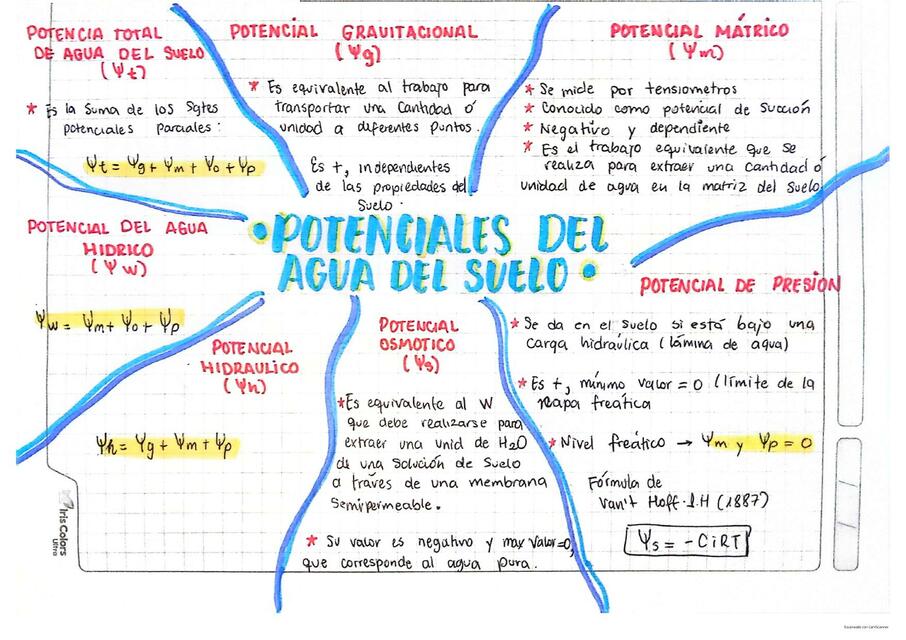 POTENCIA TOTAL
DE AGUA DEL SUELO
(Ψt)
* Es la suma de los Sgtes
potenciales parciales:
Ψt = Ψg + Ψm + Ψo + Ψp
POTENCIAL GRAVITACIONAL
(Ψg)
* Es equivalente al trabajo para
transportar una Cantidad ó
unidad a diferentes puntos.
Es +, independientes
de las propiedades del
Suelo.
POTENCIAL MÁTRICO
(Ψm)
* Se mide por tensiometros
* Conocido como potencial de succión
* Negativo y dependiente
* Es el trabajo equivalente que se
realiza para extraer una cantidad ó
unidad de agua en la matriz del Suelo
• POTENCIALES DEL
AGUA DEL SUELO •
POTENCIAL DEL AGUA
HIDRICO
(Ψw)
Ψw = Ψm + Ψo + Ψp
POTENCIAL
HIDRAULICO
(Ψh)
Ψh = Ψg + Ψm + Ψp
POTENCIAL
OSMOTICO
(Ψs)
*Es equivalente al W
que debe realizarse para
extraer una unid de H2O
de una solución de Suelo
a través de una membrana
semipermeable.
* Su valor es negativo y max valor=0,
que corresponde al agua pura.
POTENCIAL DE PRESION
* Se da en el suelo si está bajo una
carga hidraúlica (lámina de agua)
* Es +, mínimo valor = 0 (límite de la
napa freática
* Nivel freático → Ψm y Ψp = 0
Fórmula de
Van't Hoff. J.H (1887)
Ψs = - CiRT
Iris Colors
Ultra
Escaneado con CamScanner